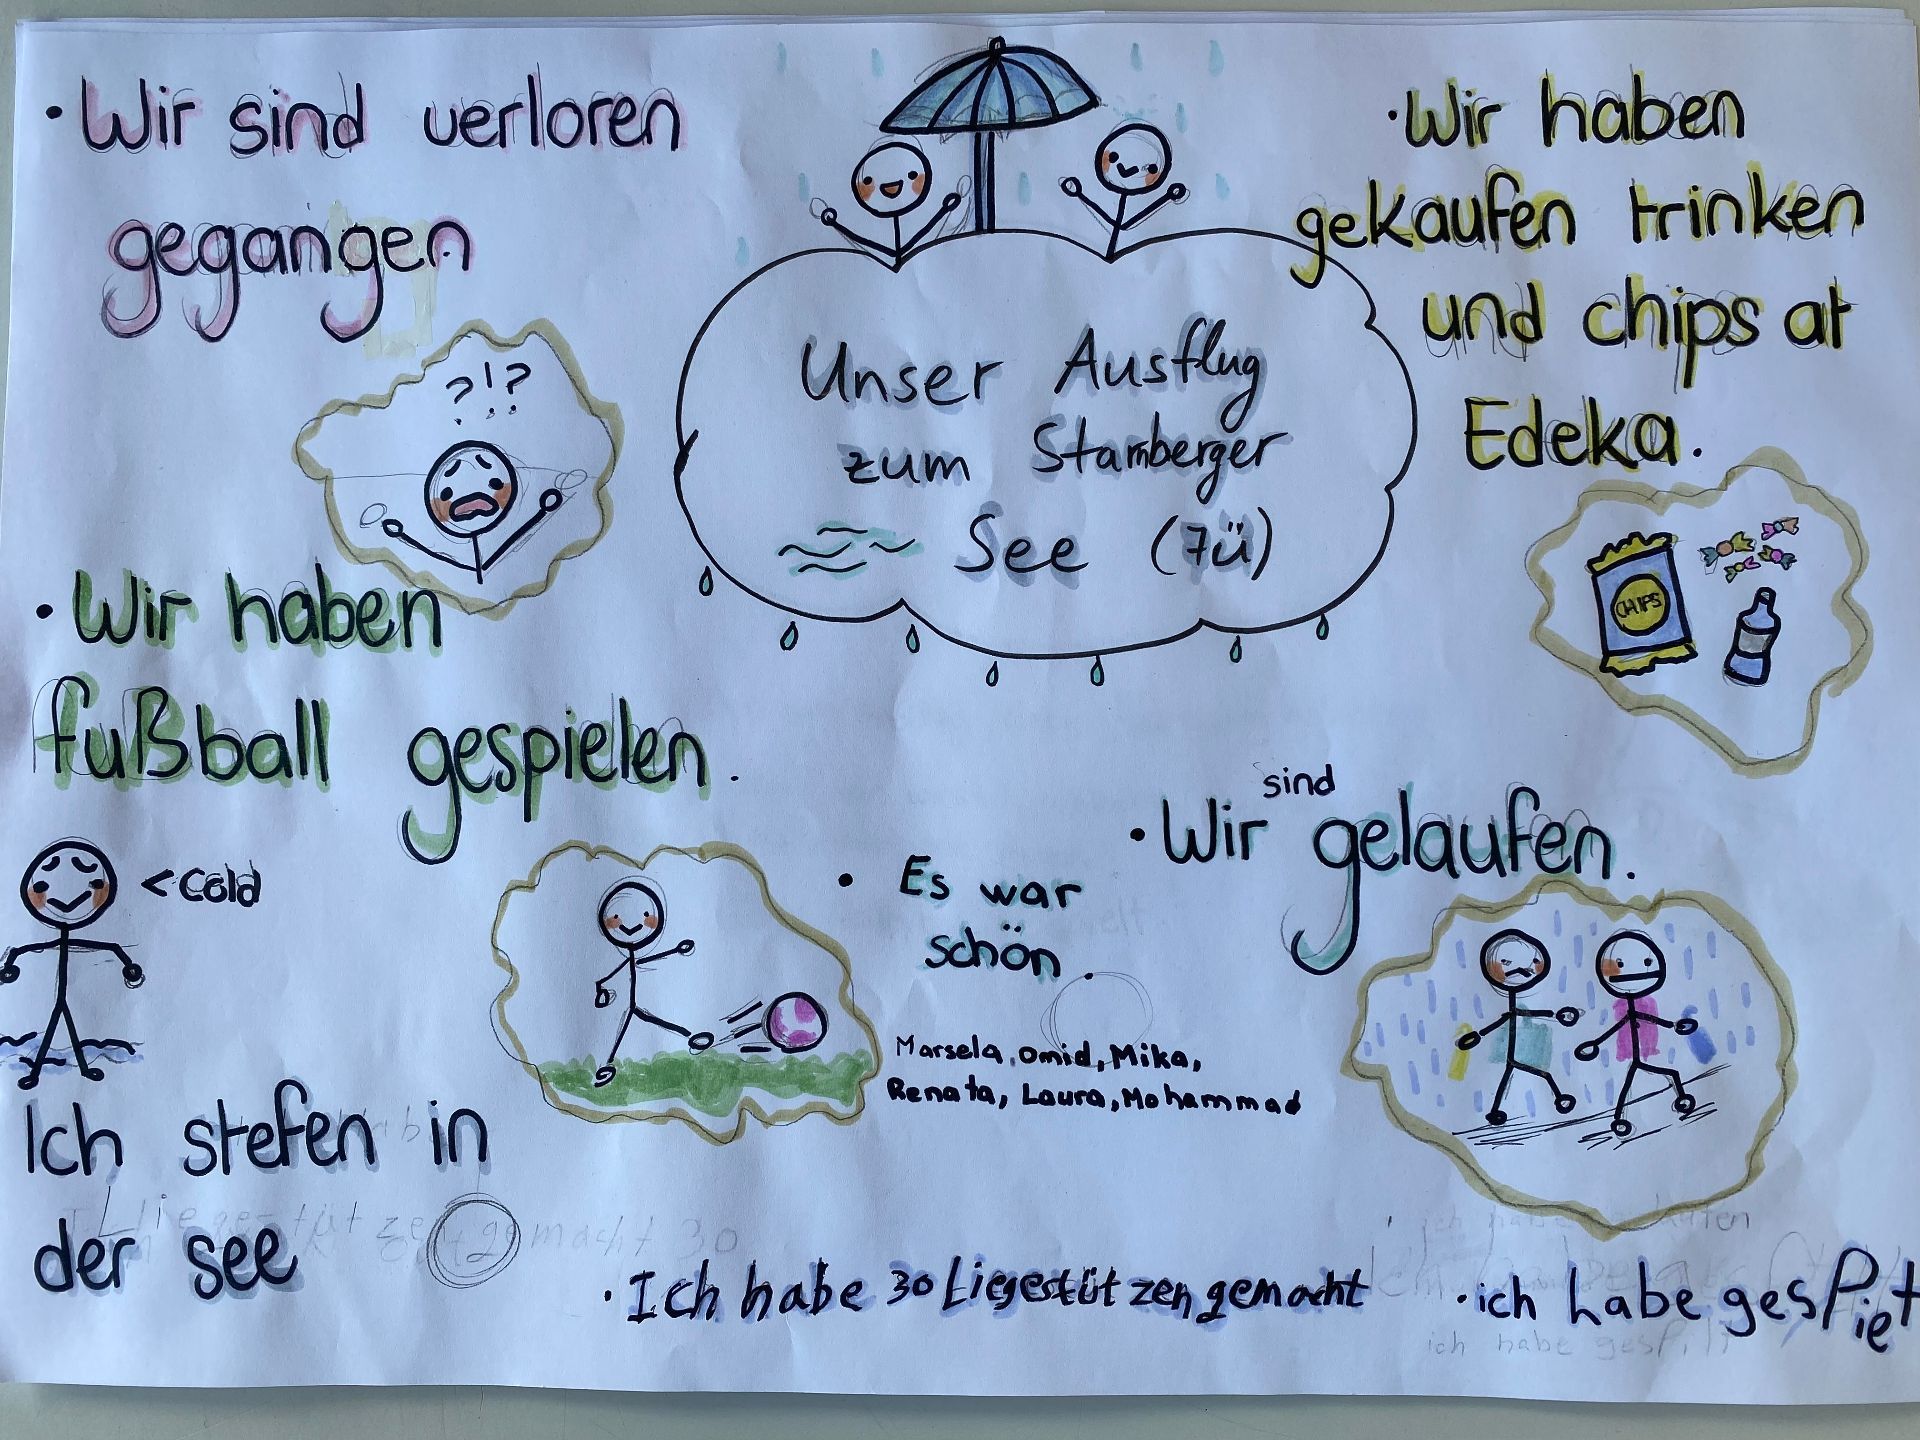 • Wir sind verloren
gegangen
?!?
Unser Ausflug
zum Starnberger
See (7ü)
• Wir haben
gekaufen trinken
und chips at
Edeka.
CHIPS
• Wir haben
fußball gespielen.
< Cold
• Es war
schön.
Marsela, Omid, Mika,
Renata, Laura, Mohammad
sind
• Wir gelaufen.
Ich stefen in
der see
Liegestützen gemacht 30
• Ich habe 30 Liegestützen gemacht
• ich habe gespiet
ich habe gespilt